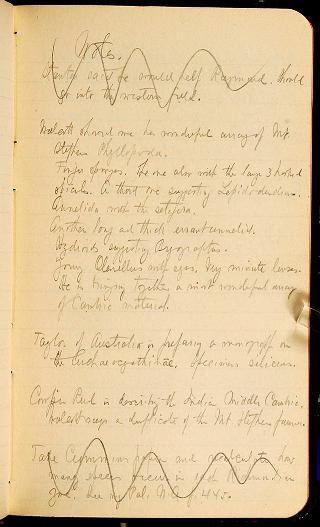 Notes.
Stanton said he would help Raymond. Should
go into the western field.
Walcott showed me his wonderful array of Mt
Stephen Phyllopoda.
Fossil sponges. He one also with the large 3 horned
spicules. A third one suggesting Lepidodendron.
Annelida with the setifera.
Another long and thick errant annelid.
Hydroids suggesting Bryograptus.
Olenellus with eyes. Very minute lenses.
He is bringing together a most wonderful array
of Cambric material.
Taylor of Australia is preparing a monograph on
the Archaeocyathinae. Specimens siliceous.
Cowper Reed is describing the Indian Middle Cambric.
Walcott says a duplicate of the Mt Stephen fauna.
Take Cummings paper and how
many species occur in each Richmondian
zone. See my Pal. N.A. p. 445.